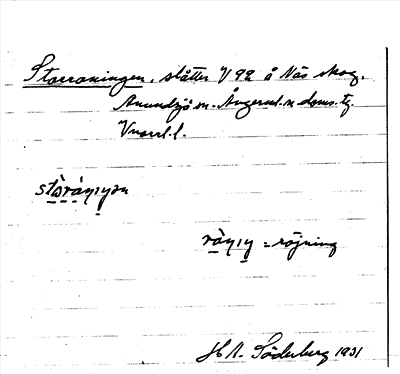 Storraningen, slåtter V 92 å Näs skog.
Anundsjö sn. Ångerml. n doms. tg.
Vnorrl. l.
stòránıŋən
rànıŋ = röjning
H A. Söderberg 1931